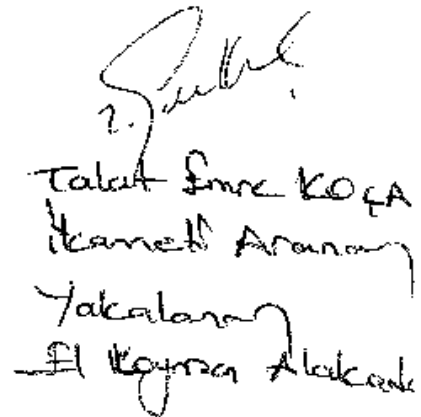 Talat Emre KOÇA
İkameti Aranan
Yakalanan
El koyma Alakalı